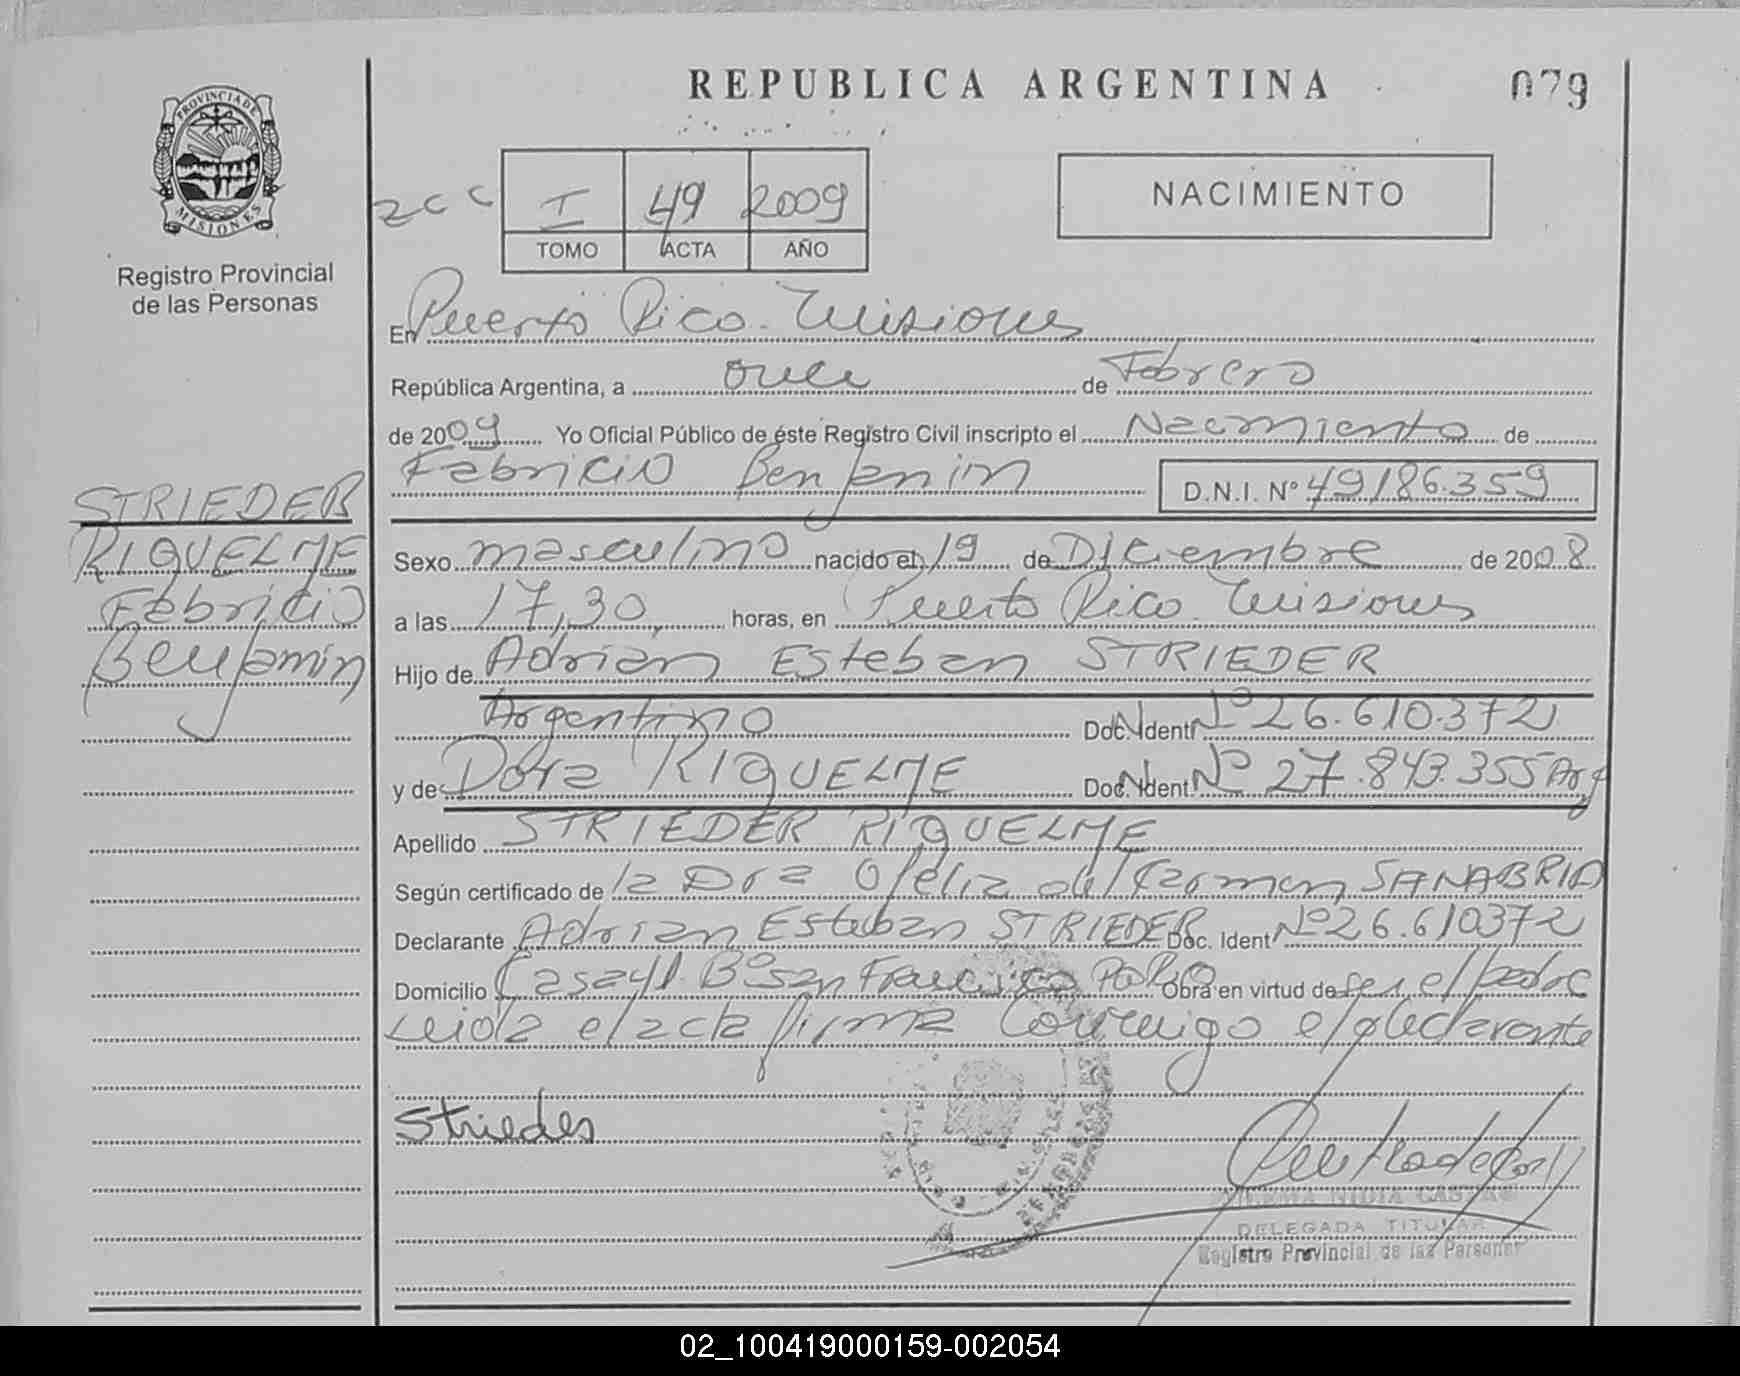 REPUBLICA ARGENTINA
079
PROVINCIA DE MISIONES
Registro Provincial
de las Personas
2cc
I 49 2009
TOMO ACTA AÑO
NACIMIENTO
En Puerto Rico. Misiones
República Argentina, a once de Febrero
de 2009 Yo Oficial Público de éste Registro Civil inscripto el Nacimiento de
Fabricio Benjamin D.N.I. Nº 49186.359
STRIEDER
RIQUELME
Fabricio
Benjamin
Sexo masculino nacido el 19 de Diciembre de 2008
a las 17,30, horas, en Puerto Rico. Misiones
Hijo de Adrian Esteban STRIEDER
Argentino Doc. Ident Nº 26.610.372
y de Dora RIQUELME Doc. Ident Nº 27.843.355 Arg
Apellido STRIEDER RIQUELME
Según certificado de la Dra Ofelia del Carmen SANABRIA
Declarante Adrian Esteban STRIEDER Doc. Ident Nº 26.610372
Domicilio Casa 41. Bº San Francisco Obra en virtud de ser el padre
Leida el acta firma conmigo el declarante
Strieder
NIDIA
DELEGADA TITULAR
Registro Provincial de las Personas
02_100419000159-002054